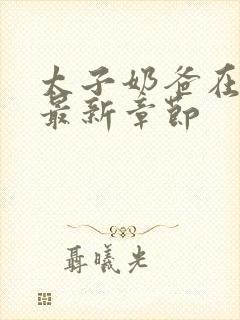 太子奶爸在
最新章節
聶曦光